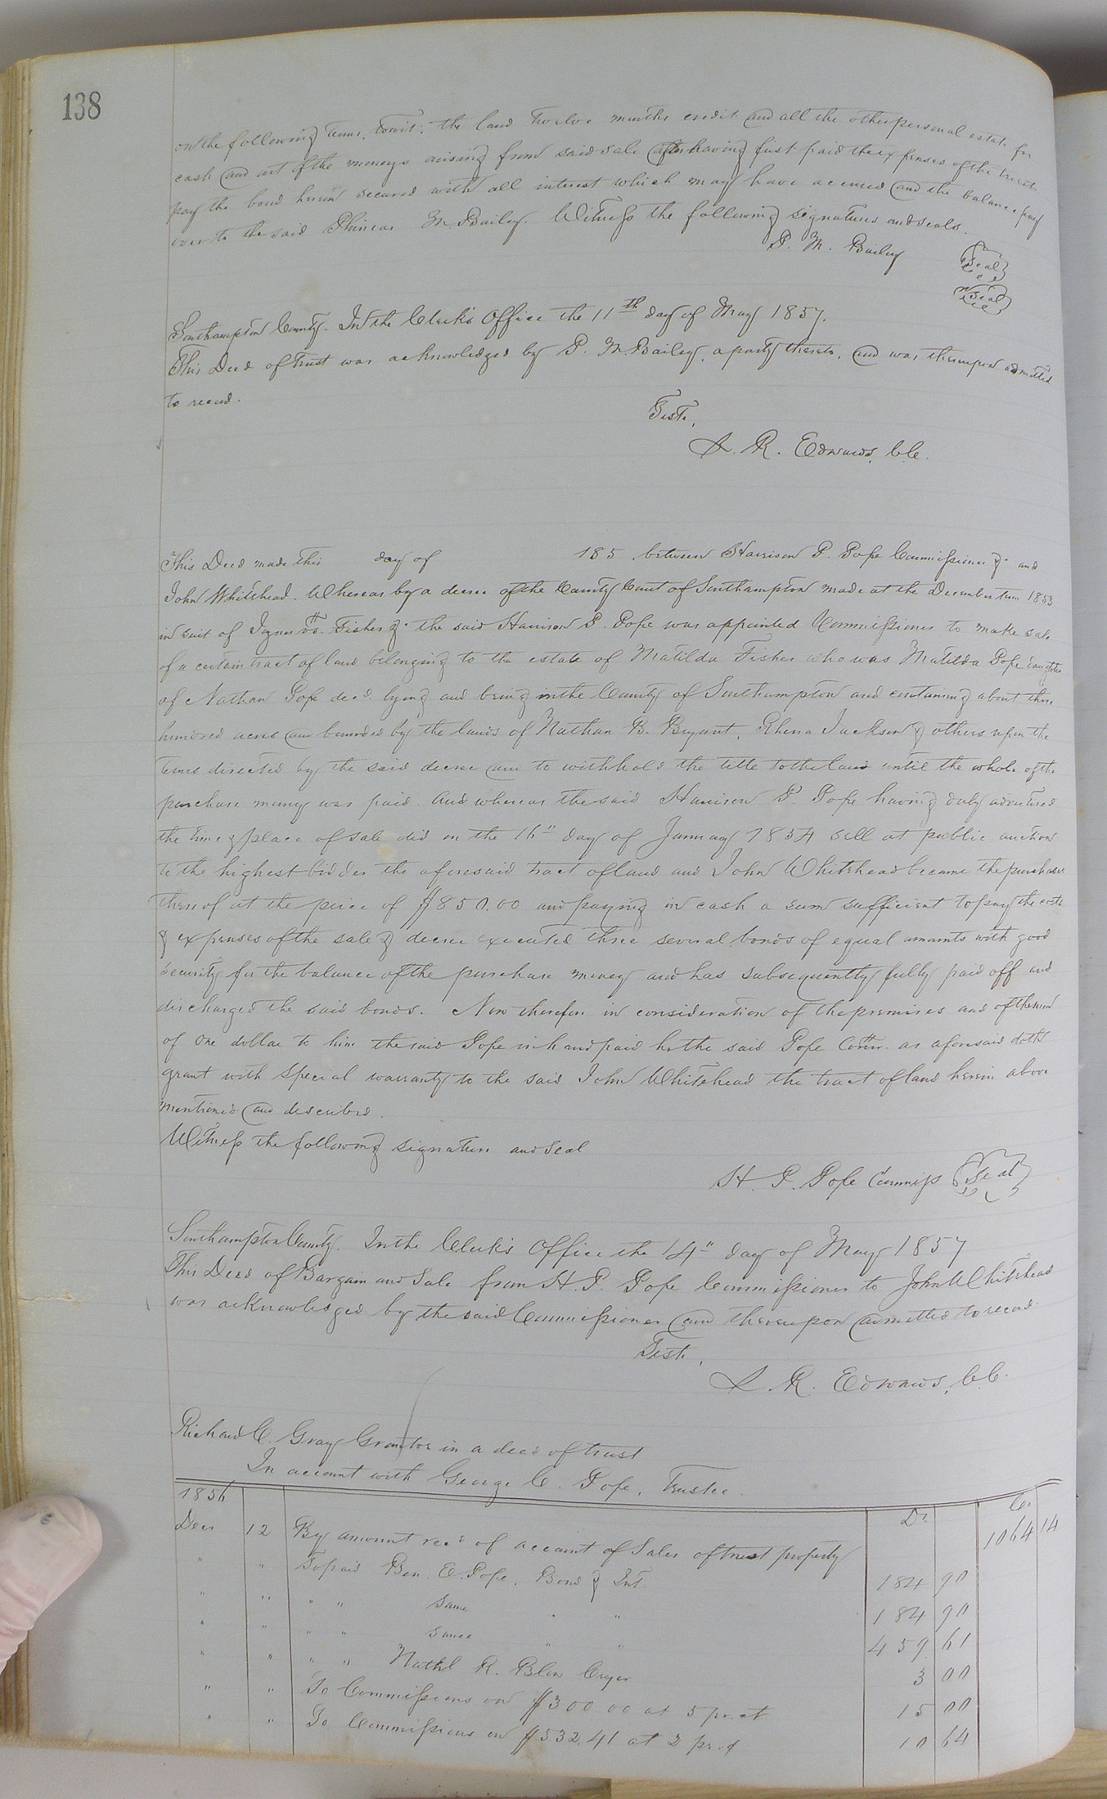 138
on the following terms, towit: the land twelve months credit and all the other personal estate for
cash and out of the moneys arising from said sale after having first paid the expenses of the trust
pay the bond herein secured with all interest which may have accrued and the balance pay
over to the said Phineas M. Bailey. Witness the following signatures and seals.
P. M. Bailey {Seal}
{Seal}
Southampton County. In the Clerk's Office the 11th day of May 1857.
This Deed of trust was acknowledged by P. M. Bailey, a party thereto, and was thereupon admitted
to record.
Teste,
L. R. Edwards, C.C.
This Deed made this day of 185 between Harrison P. Pope Commissioner &c and
John Whitehead. Whereas by a decree of the County Court of Southampton made at the December term 1853
in suit of vs. Fisher &c the said Harrison P. Pope was appointed Commissioner to make sale
of a certain tract of land belonging to the estate of Matilda Fisher who was Matilda Pope daughter
of Nathan Pope decd. lying and being in the County of Southampton and containing about three
hundred acres and bounded by the lands of Nathan B. Bryant, Jackson & others upon the
terms directed by the said decree and to withhold the title to the land until the whole of the
purchase money was paid. And whereas the said Harrison P. Pope having duly advertised
the time & place of sale did on the 16th day of January 1854 sell at public auction
to the highest bidder the aforesaid tract of land and John Whitehead became the purchaser
thereof at the price of $850.00 and paying in cash a sum sufficient to pay the costs
& expenses of the sale & decree executed three several bonds of equal amounts with good
security for the balance of the purchase money and has subsequently fully paid off and
discharged the said bonds. Now therefore in consideration of the premises and of the sum
of one dollar to him the said Pope in hand paid he the said Pope Comr. as aforesaid doth
grant with special warranty to the said John Whitehead the tract of land herein above
mentioned and described.
Witness the following signature and seal
H. P. Pope Commiss {Seal}
Southampton County. In the Clerk's Office the 14" day of May 1857
This Deed of Bargain and Sale from H. P. Pope Commissioner to John Whitehead
was acknowledged by the said Commissioner and thereupon admitted to record.
Teste,
L. R. Edwards, C.C.
Richard C. Gray Grantor in a deed of trust
In account with George C. Pope, Trustee.
1856 Dr. Cr.
Decr 12 By amount recd of account of Sales of trust property 1064 14
" " To paid Ben. E. Pope, Bond & Int 184 90
" " " " Same " " 184 90
" " " " Same " " 459 61
" " " " Nathl R. Blow Cryer 3 00
" " To Commissions on $300 00 at 5 pr. ct 15 00
" " To Commissions on $532.41 at 2 pr. ct 10 64